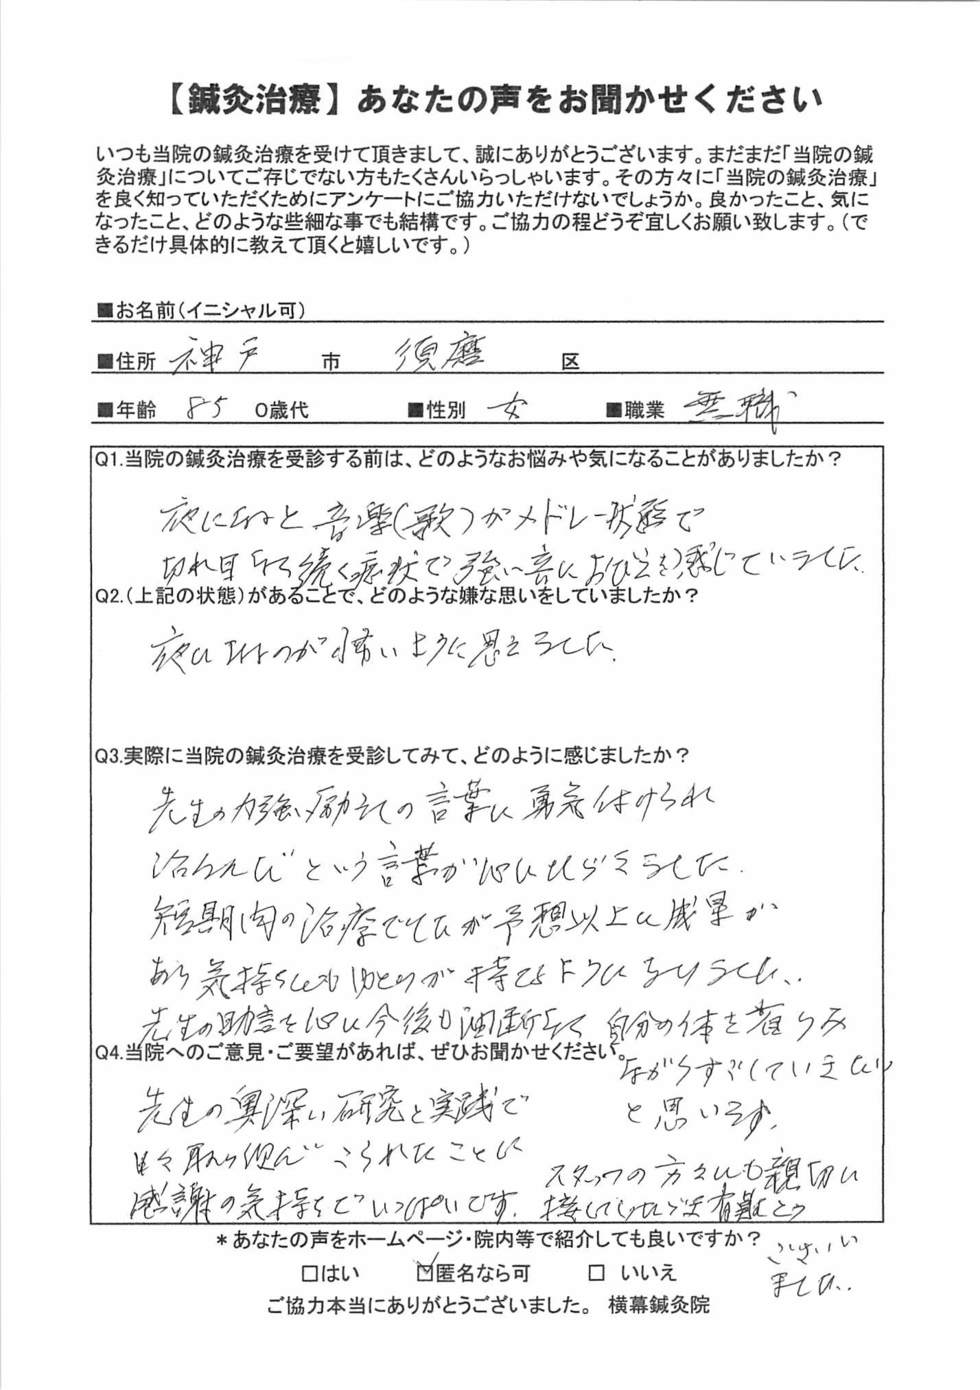 【鍼灸治療】あなたの声をお聞かせください
いつも当院の鍼灸治療を受けて頂きまして、誠にありがとうございます。まだまだ「当院の鍼
灸治療」についてご存じでない方もたくさんいらっしゃいます。その方々に「当院の鍼灸治療」
を良く知っていただくためにアンケートにご協力いただけないでしょうか。良かったこと、気に
なったこと、どのような些細な事でも結構です。ご協力の程どうぞ宜しくお願い致します。（で
きるだけ具体的に教えて頂くと嬉しいです。）
■お名前（イニシャル可）
■住所 神戸 市 須磨 区
■年齢 85 0歳代 ■性別 女 ■職業 無職
Q1.当院の鍼灸治療を受診する前は、どのようなお悩みや気になることがありましたか？
夜になると音楽(歌)がメドレー状態で
切れ目なく続く症状で強い音に 感じていました.
Q2.（上記の状態）があることで、どのような嫌な思いをしていましたか？
夜になるのが怖いように思えました.
Q3.実際に当院の鍼灸治療を受診してみて、どのように感じましたか？
先生の力強い励ましの言葉に勇気付けられ
という言葉が心にひびきました.
短期間の治療でしたが予想以上に成果が
あり気持ちにもゆとりが持てるようになりました..
先生の助言を心に今後も油断なく自分の体を
ながらすごしていきたい
と思います.
Q4.当院へのご意見・ご要望があれば、ぜひお聞かせください。
先生の奥深い研究と実践で
日々取り組んでこられたことに
感謝の気持ちでいっぱいです.
スタッフの方々にも親切に
接して 有難とう
ございい
ました..
＊あなたの声をホームページ・院内等で紹介しても良いですか？
□はい ☑匿名なら可 □ いいえ
ご協力本当にありがとうございました。 横幕鍼灸院